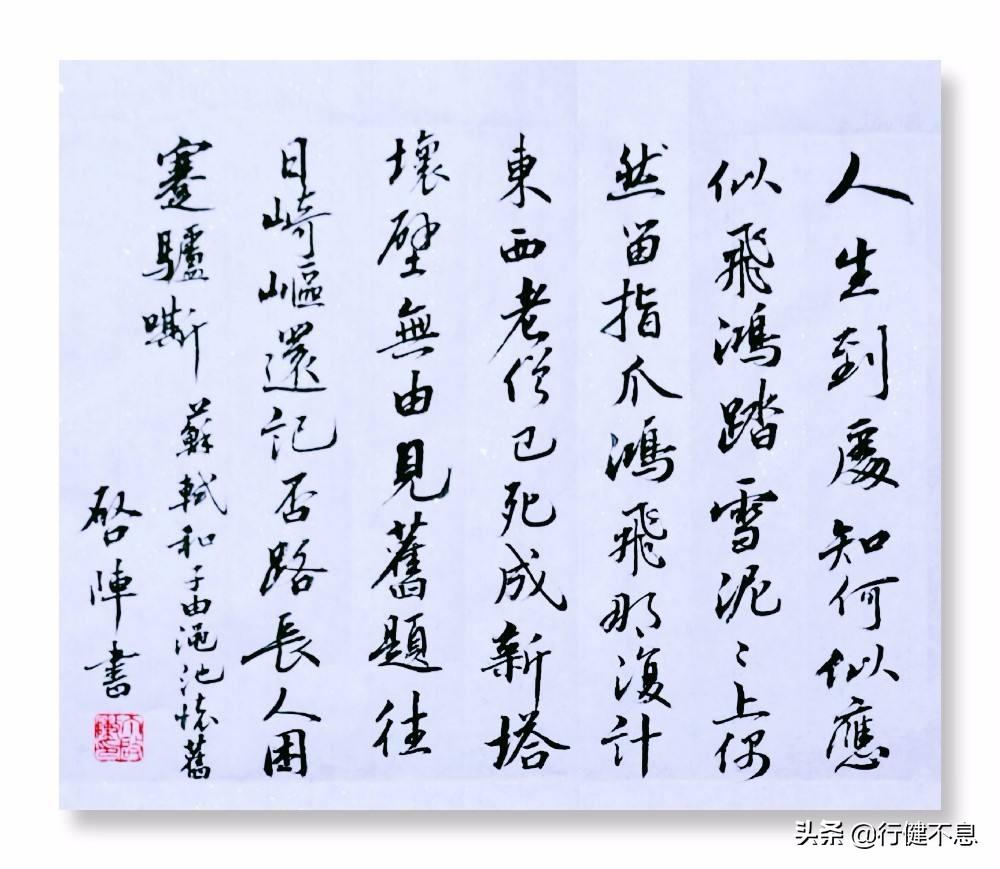 人生到處知何似應
似飛鴻踏雪泥〻上偶
然留指爪鴻飛那復計
東西老僧已死成新塔
壞壁無由見舊題往
日崎嶇還記否路長人困
蹇驢嘶
蘇軾和子由澠池懷舊
啓陣書
头条 @行健不息